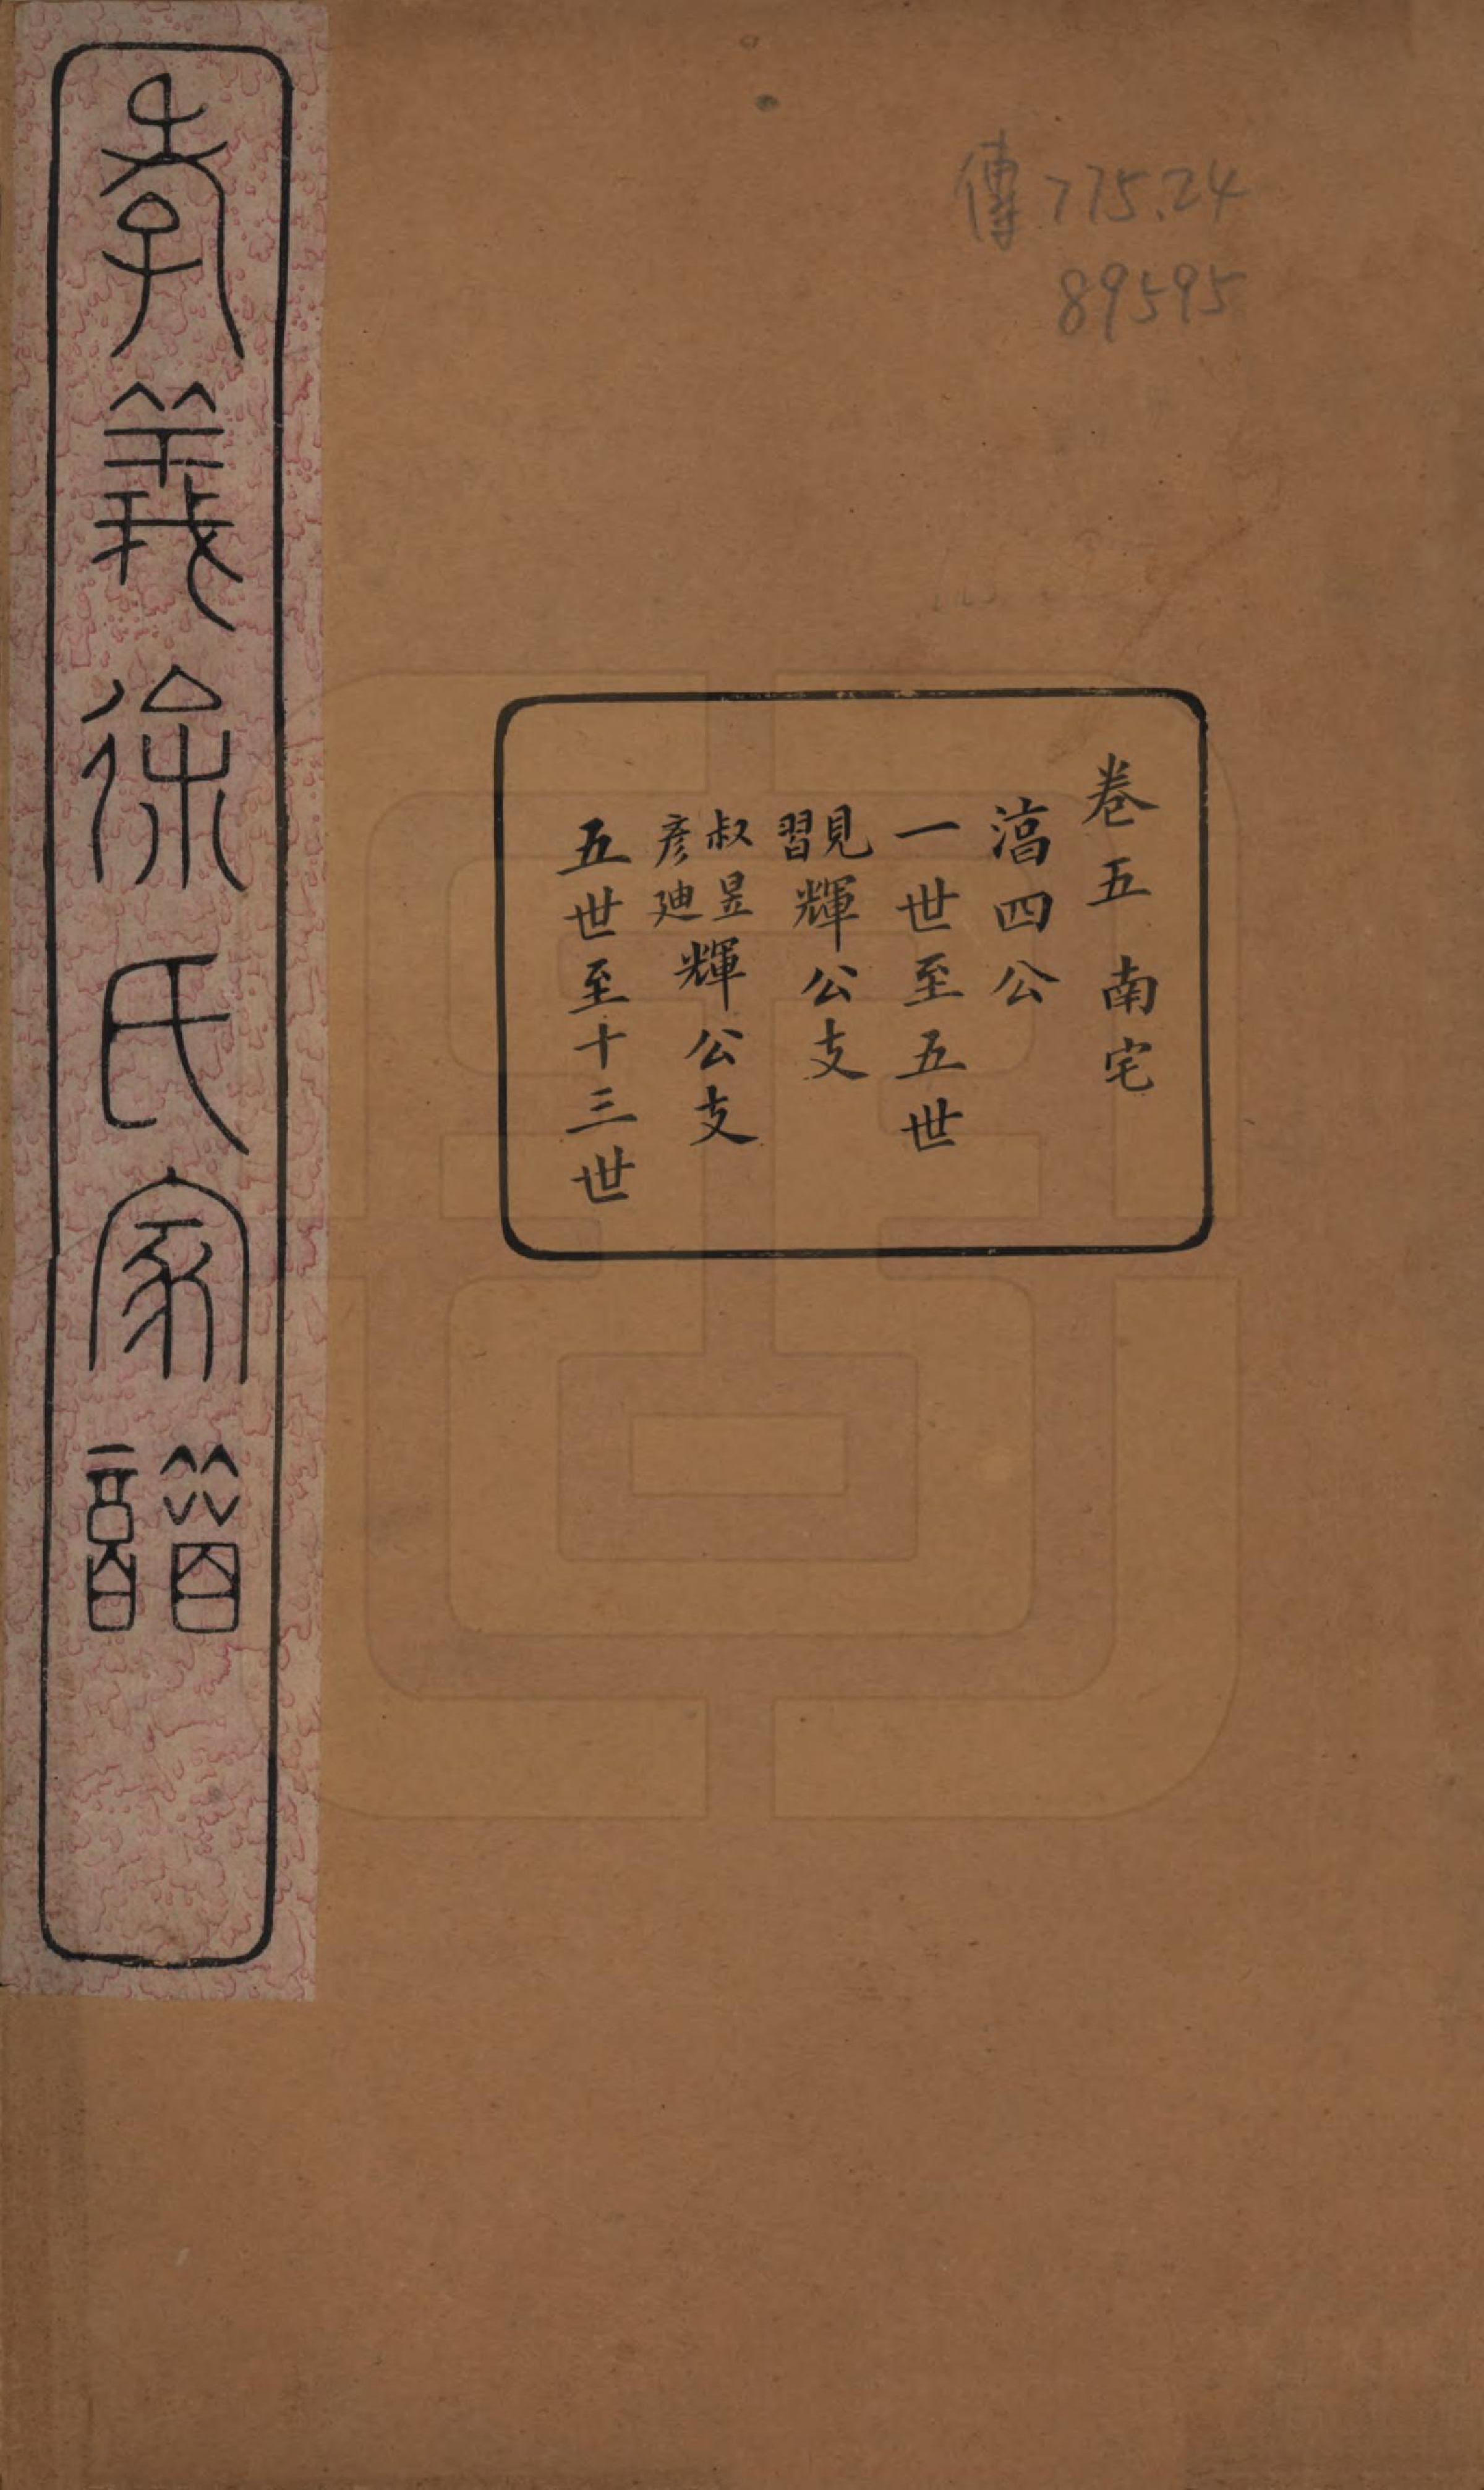 傳 775.24
89595
卷五南宅
滈四公
一世至五世
見習輝公支
叔昱彥廸輝公支
五世至十三世
孝義徐氏家譜